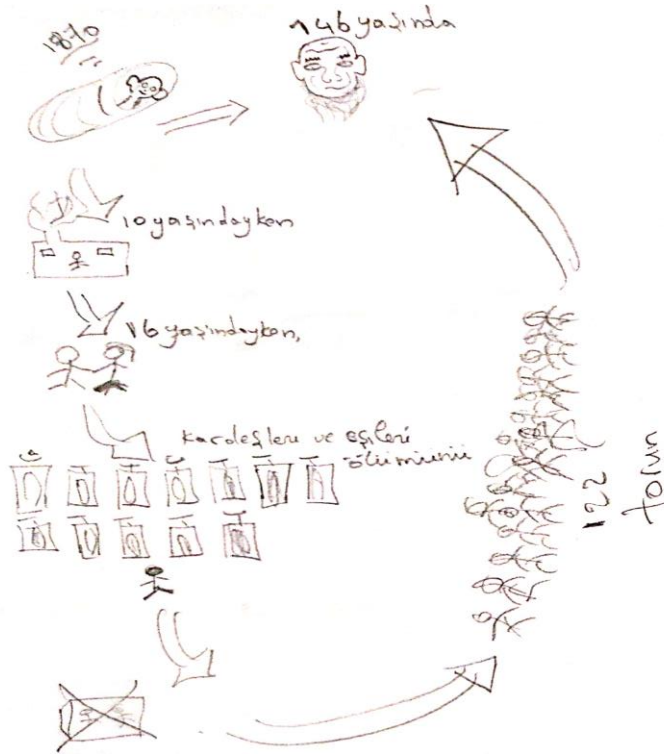 1870
146 yaşında
10 yaşındayken
16 yaşındayken,
kardeşleri ve eşleri
ölümünü
122
torun